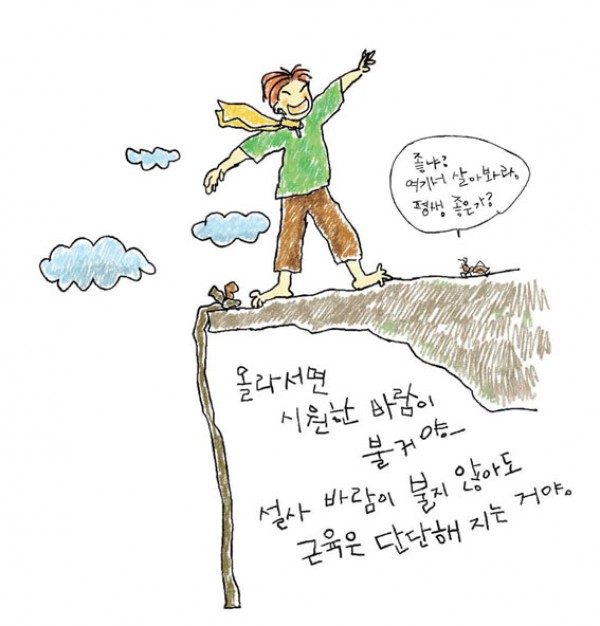 좋냐?
여기서 살아봐라.
평생 좋은가?
올라서면
시원한 바람이
불거야–
설사 바람이 불지 않아도
근육은 단단해 지는 거야.